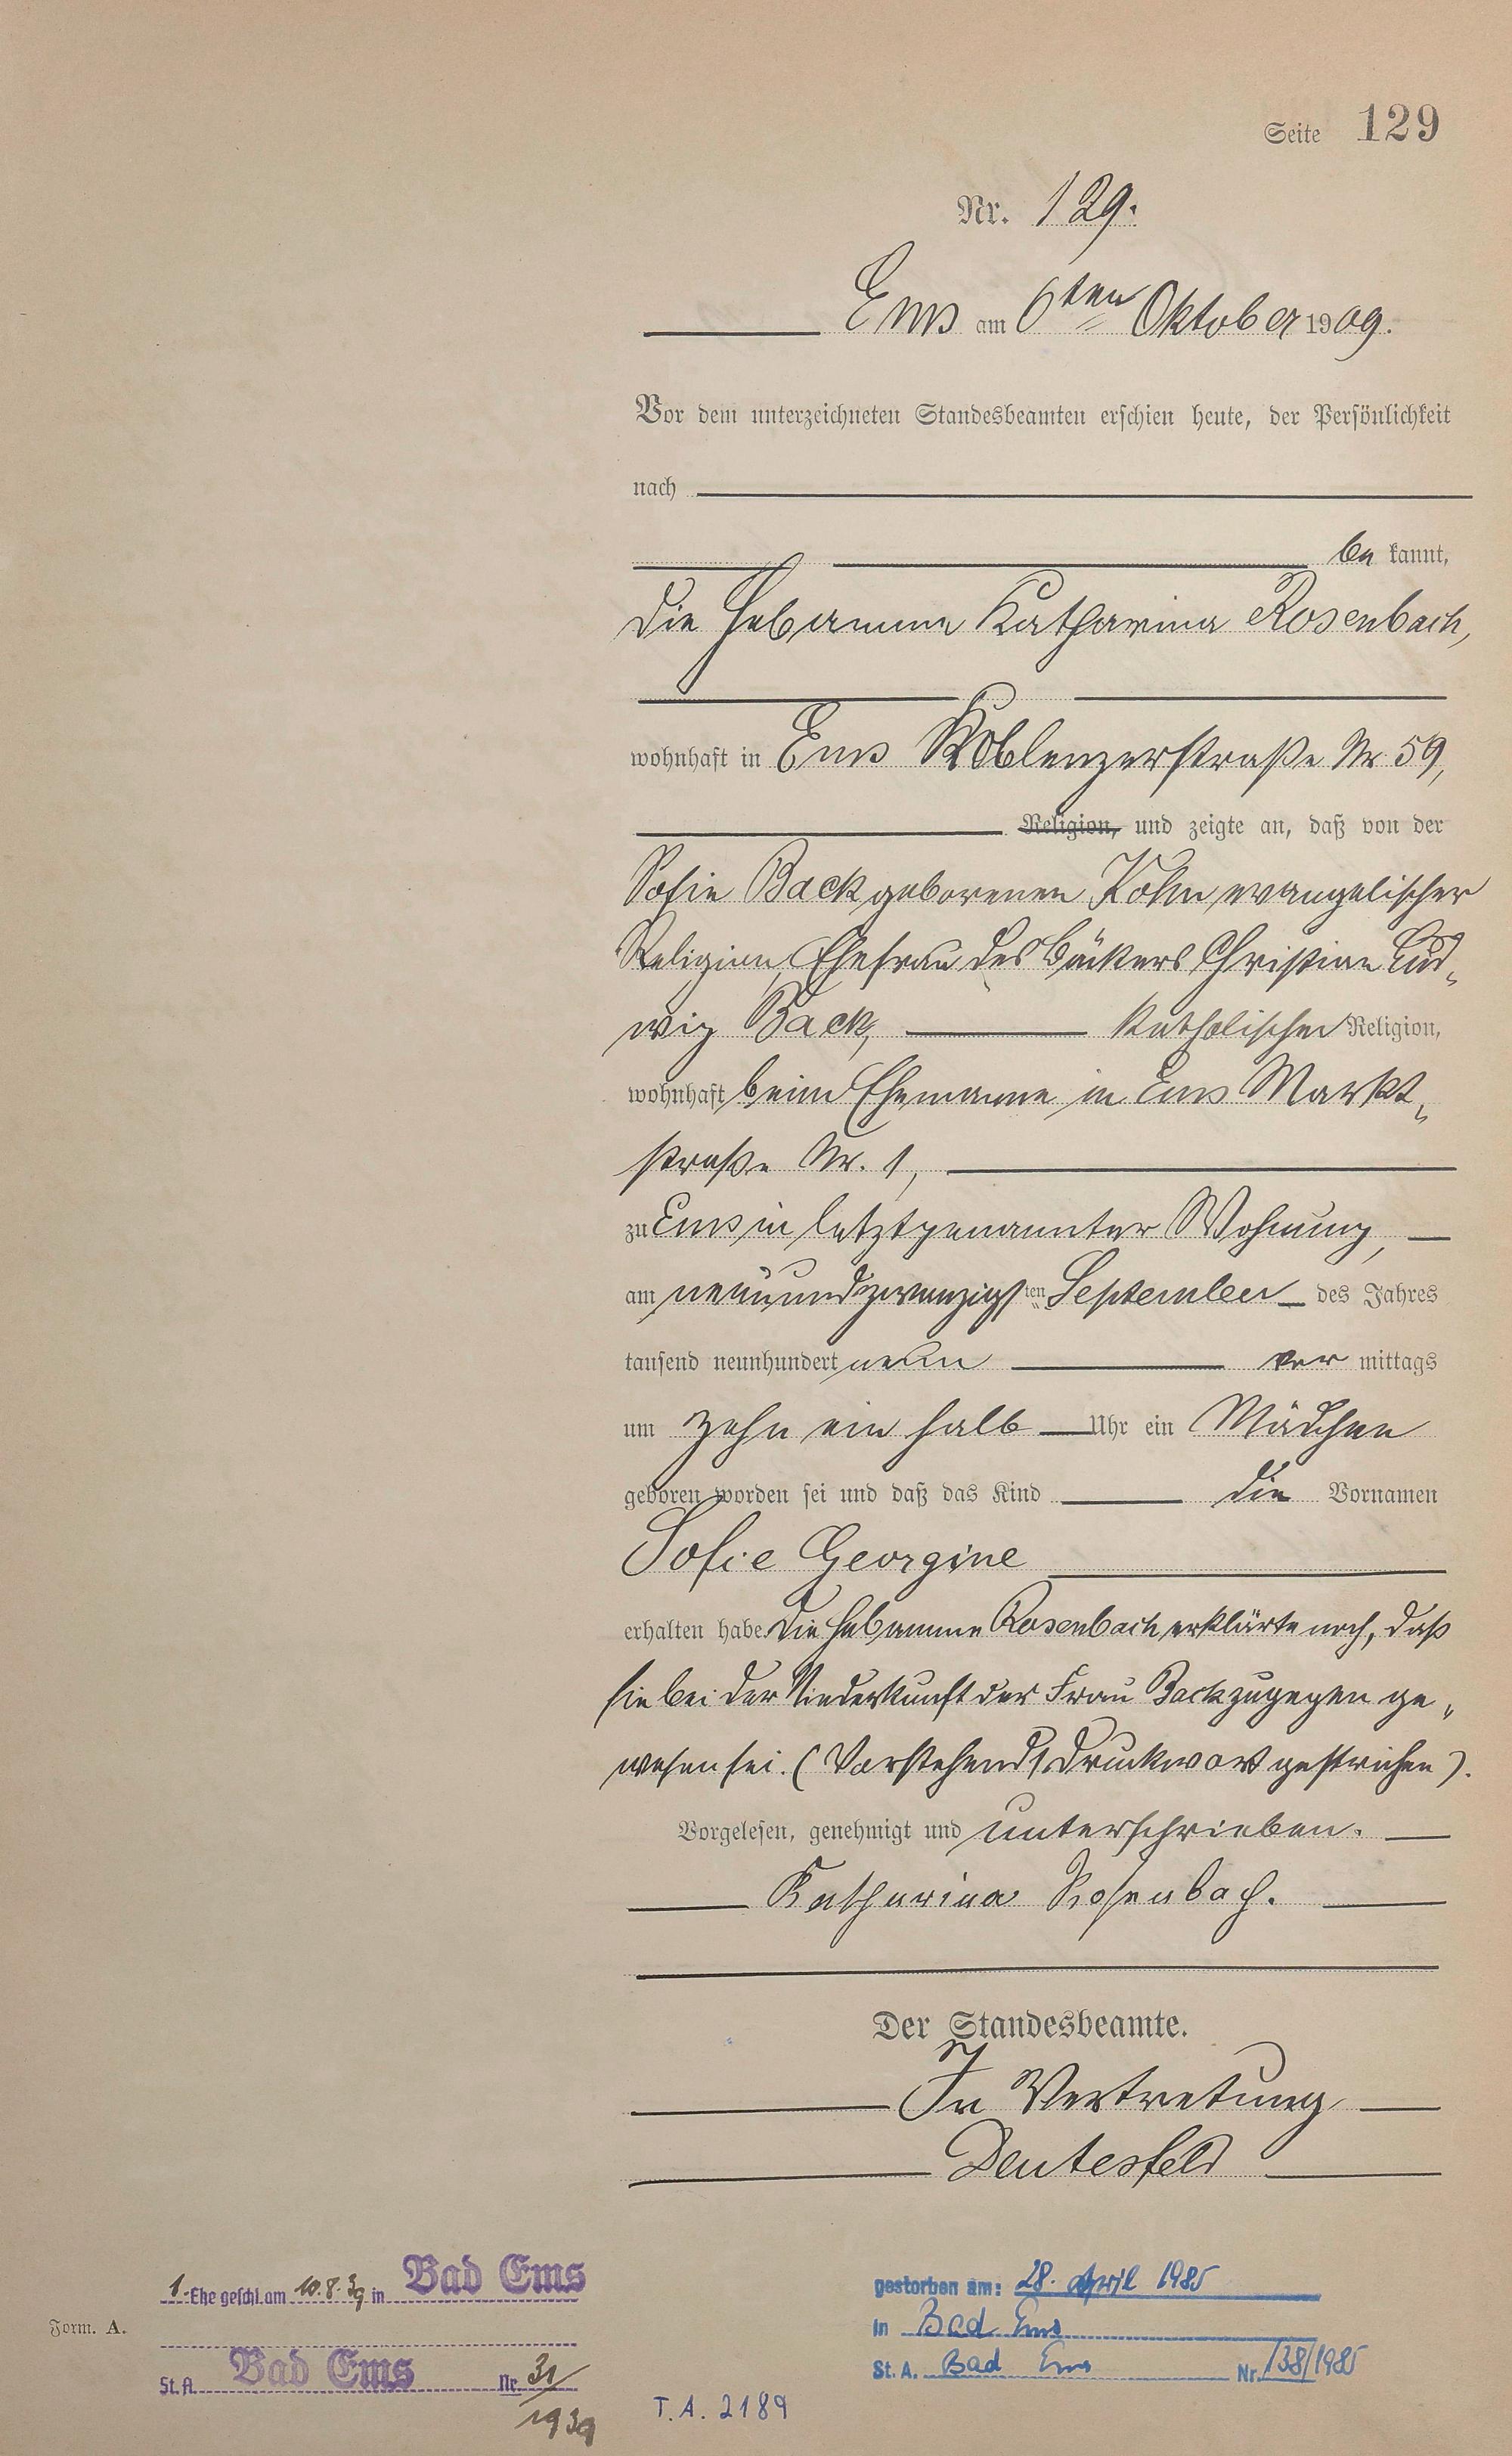 Seite 129
Nr. 129.
Ems am 6ten Oktober 1909.
Vor dem unterzeichneten Standesbeamten erschien heute, der Persönlichkeit
nach
be kannt,
die Hebamme Katharina Rosenbach,
wohnhaft in Ems Koblenzerstraße Nr. 59,
Religion, und zeigte an, daß von der
Sofie Back geborenen Kohn, evangelischer
Religion, Ehefrau des Bäckers Christian Lud„
wig Back, katholischer Religion,
wohnhaft beim Ehemanne in Ems Markt„
straße Nr. 1,
zu Ems in letztgenannter Wohnung,
am neunundzwanzigsten September des Jahres
tausend neunhundert neun vor mittags
um zehn ein halb Uhr ein Mädchen
geboren worden sei und daß das Kind die Vornamen
Sofie Georgine
erhalten habe. Die Hebamme Rosenbach erklärte noch, daß
sie bei der Niederkunft der Frau Back zugegen ge„
wesen sei. (Vorstehend 1 Druckwort gestrichen).
Vorgelesen, genehmigt und unterschrieben.
Katharina Rosenbach.
Der Standesbeamte.
In Vertretung
Deutesfeld
1.-Ehe geschl. am 10.8.39 in Bad Ems
Form. A.
St. A. Bad Ems Nr. 31/
1939
gestorben am: 28. April 1985
in Bad Ems
St. A. Bad Ems Nr. 138/1985
T. A. 2189